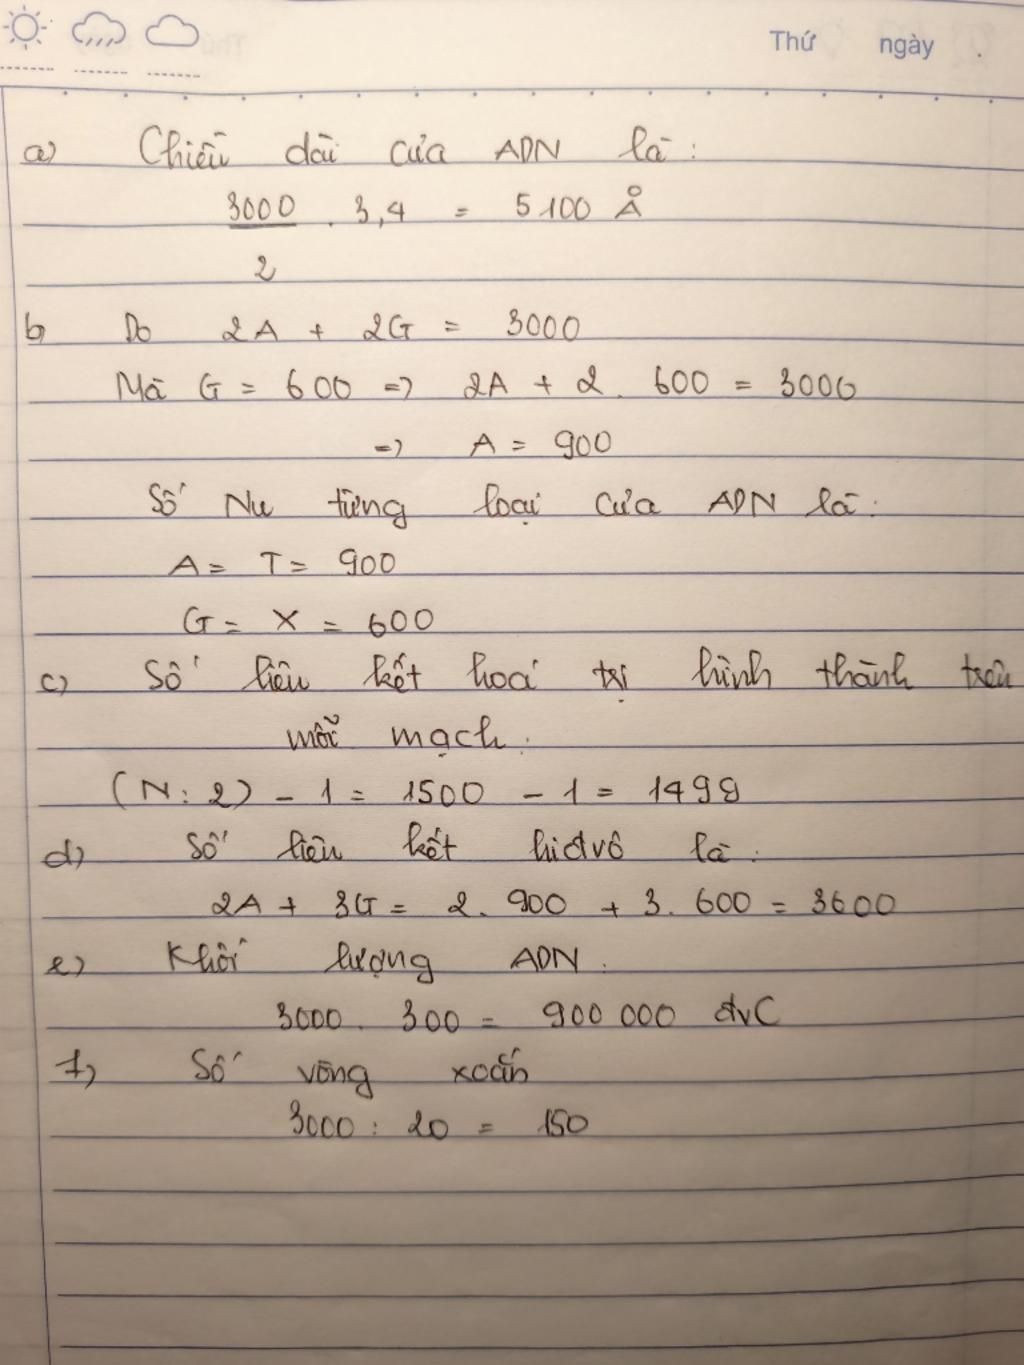 Thứ ngày .
a) Chiều dài của ADN là :
3000 . 3,4 = 5100 Å
2
b) Do 2A + 2G = 3000
Mà G = 600 => 2A + 2 . 600 = 3000
=> A = 900
Số Nu từng loại của ADN là :
A = T = 900
G = X = 600
c) Số liên kết hoá trị hình thành trên
mỗi mạch :
(N : 2) - 1 = 1500 - 1 = 1499
d) Số liên kết hiđrô là :
2A + 3G = 2 . 900 + 3 . 600 = 3600
e) Khối lượng ADN :
3000 . 300 = 900 000 đvC
f) Số vòng xoắn
3000 : 20 = 150